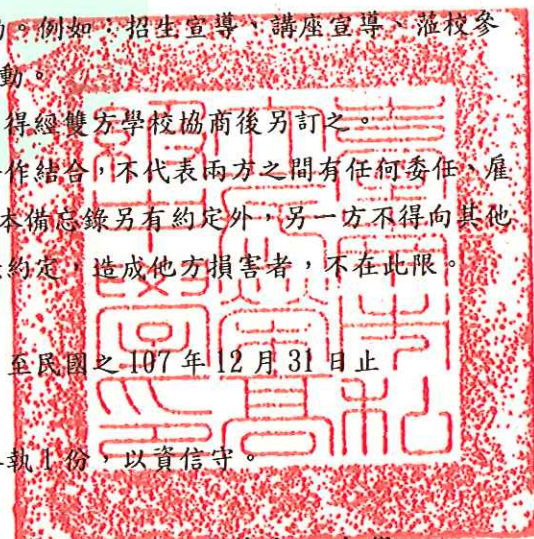 動。例如：招生宣導、講座宣導、蒞校參
動。
得經雙方學校協商後另訂之。
作結合，不代表兩方之間有任何委任、雇
本備忘錄另有約定外，另一方不得向其他
約定，造成他方損害者，不在此限。
至民國之 107 年 12 月 31 日止
執 1 份，以資信守。